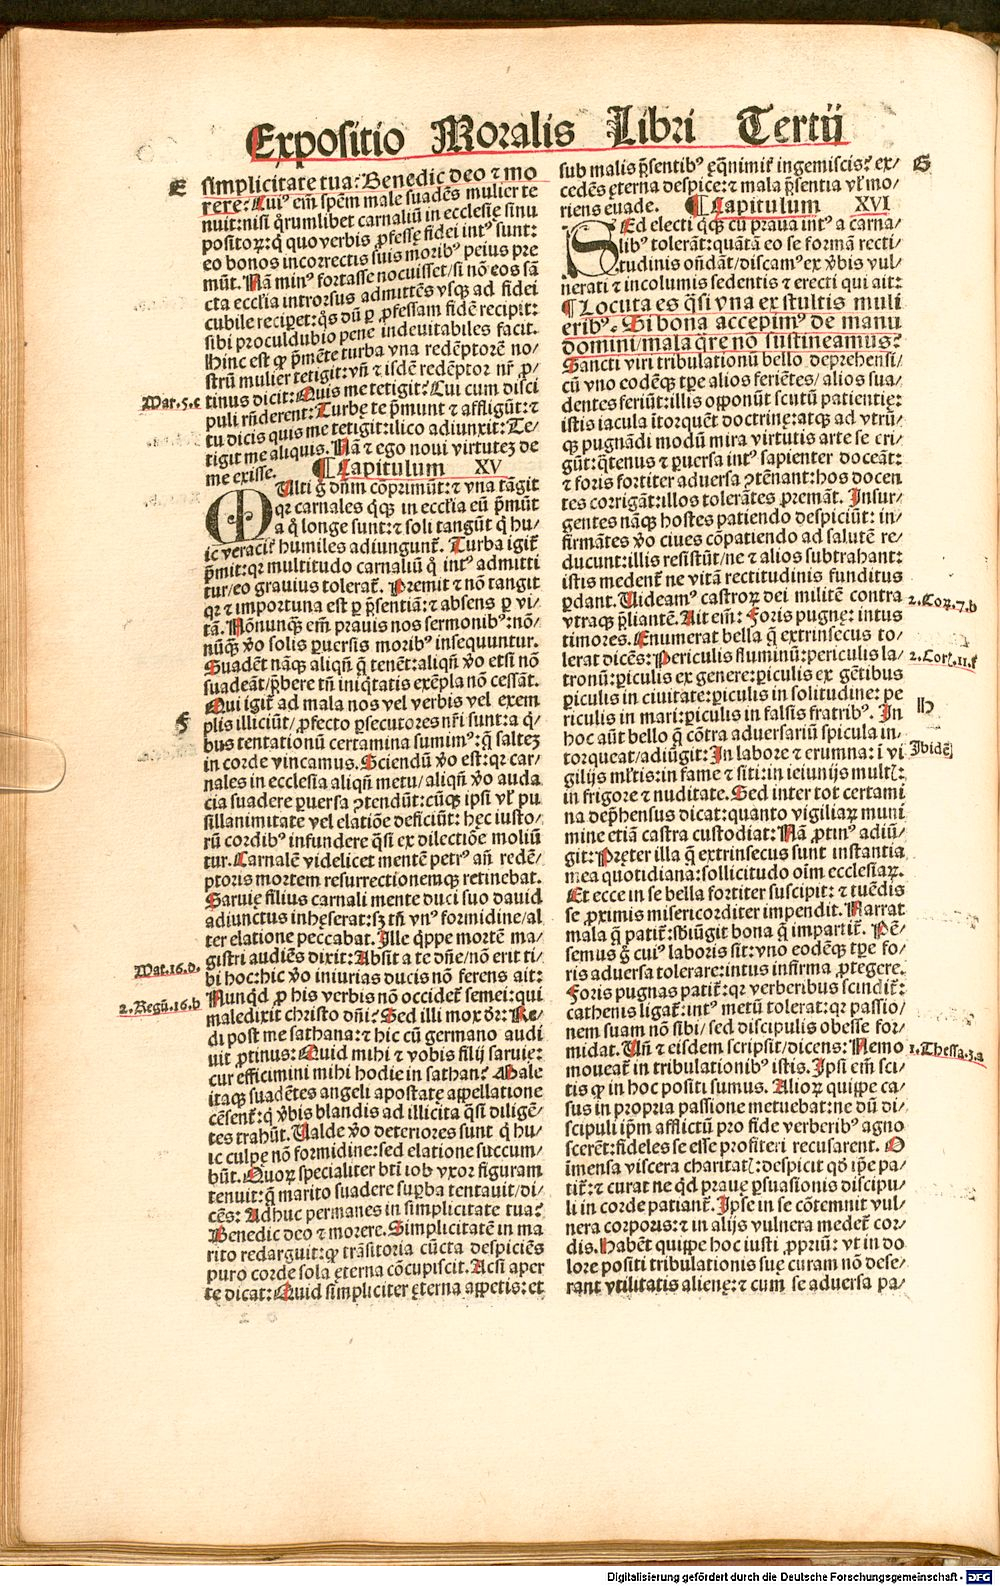 Expositio Moralis Libri Tertij
E
simplicitate tua: Benedic deo ⁊ mo
rere: Cui⁹ em̄ spēm male suadēs mulier te
nuit: nisi q̄rumlibet carnaliū in ecclesię sinu
positoꝝ: q̇ quo verbis ꝓfessę fidei int⁹ sunt:
eo bonos incorrectis suis morib⁹ peius pre
mūt. Nā min⁹ fortasse nocuisset/ si nō eos sā
cta eccl̄ia introrsus admittēs vsq̄ ad fidei
cubile reciꝑet: q̇s dū ꝑ ꝓfessam fidē recipit:
sibi proculdubio pene indeuitabiles facit.
Hinc est ꝙ p̄mēte turba vna redēptorē no/
strū mulier tetigit: vn̄ ⁊ isdē redēptor nr̄ ꝓ/
tinus dicit: Quis me tetigit? Cui cum disci
puli rn̄derent: Turbę te p̄munt ⁊ affligūt: ⁊
tu dicis quis me tetigit: ilico adiunxit: Te/
tigit me aliquis. Nā ⁊ ego noui virtutez de
me exisse. ¶ Capitulum XV
Mar.5.e
MUlti g̊ dn̄m cōprimūt: ⁊ vna tāgit
qꝛ carnales q̇q̄ in eccl̄ia eū p̄mūt
a q̊ longe sunt: ⁊ soli tangūt q̇ hu/
ic veracit̄ humiles adiungunt̄. Turba igit̄
p̄mit: qꝛ multitudo carnaliū q̊ int⁹ admitti
tur/ eo grauius tolerat̄. Premit ⁊ nō tangit
qꝛ ⁊ importuna est ꝑ p̄sentiā: ⁊ absens ꝑ vi/
tā. Nōnunq̄ em̄ prauis nos sermonib⁹: nō/
nūq̄ v̊o solis ꝑuersis morib⁹ insequuntur.
Suadēt nāq̄ aliqn̄ q̄ tenēt: aliqn̄ v̊o etsi nō
suadeāt/ p̄bere tn̄ iniq̇tatis exēpla nō cessāt.
Qui igit̄ ad mala nos vel verbis vel exem
plis illiciūt/ ꝓfecto ꝑsecutores nr̄i sunt: a q̇/
bus tentationū certamina sumim⁹: q̄ saltez
in corde vincamus. Sciendū v̊o est: qꝛ car/
nales in ecclesia aliqn̄ metu/ aliqn̄ v̊o auda
cia suadere ꝑuersa ꝯtendūt: cūq̄ ipsi vl̄ pu
sillanimitate vel elatiōe deficiūt: hęc iusto/
rū cordib⁹ infundere q̄si ex dilectiōe moliū
tur. Carnalē videlicet mentē petr⁹ an̄ redē/
ptoris mortem resurrectionemq̄ retinebat.
Saruię filius carnali mente duci suo dauid
adiunctus inhęserat: sꝫ tn̄ vn⁹ formidine/ al
ter elatione peccabat. Ille q̇ppe mortē ma/
gistri audiēs dixit: Absit a te dn̄e/ nō erit ti/
bi hoc: hic v̊o iniurias ducis nō ferens ait:
Nunq̇d ꝓ his verbis nō occidet̄ semei: qui
maledixit christo dn̄i? Sed illi mox d̄r: Re/
di post me sathana: ⁊ hic cū germano audi
uit ꝓtinus: Quid mihi ⁊ vobis filij saruię:
cur efficimini mihi hodie in sathan? Male
itaq̄ suadētes angeli apostatę appellatione
cēsent̄: q̇ v̄bis blandis ad illicita q̄si diligē/
tes trahūt. Ualde v̊o deteriores sunt q̇ hu/
ic culpę nō formidine: sed elatione succum/
būt. Quoꝝ specialiter bt̄i iob vxor figuram
tenuit: q̄ marito suadere suꝑba tentauit/ di/
cēs: Adhuc permanes in simplicitate tua?
Benedic deo ⁊ morere. Simplicitatē in ma
rito redarguit: ꝙ trāsitoria cūcta despiciēs
puro corde sola ęterna cōcupiscit. Acsi aper
te dicat: Quid simpliciter ęterna appetis: et
F
Mat.16.d.
2.Regū.16.b
sub malis p̄sentib⁹ eq̄nimit̄ ingemiscis? ex/
cedēs ęterna despice: ⁊ mala p̄sentia vl̄ mo/
riens euade. ¶ Capitulum XVI
G
SEd electi q̇q̄ cū praua int⁹ a carna/
lib⁹ tolerāt: quātā eo se formā recti/
tudinis on̄dāt/ discam⁹ ex v̄bis vul/
nerati ⁊ incolumis sedentis ⁊ erecti qui ait:
¶ Locuta es q̄si vna ex stultis muli
erib⁹. Si bona accepim⁹ de manu
domini/ mala q̄re nō sustineamus?
Sancti viri tribulationū bello deprehensi/
cū vno eodēq̄ tp̄e alios feriētes/ alios sua/
dentes feriūt: illis opponūt scutū patientię:
istis iacula ītorquēt doctrinę: atq̄ ad vtrū/
q̄ pugnādi modū mira virtutis arte se eri/
gūt: q̄tenus ⁊ ꝑuersa int⁹ sapienter doceāt:
⁊ foris fortiter aduersa ꝯtēnant: hos docen
tes corrigāt: illos tolerātes premāt. Insur/
gentes nāq̄ hostes patiendo despiciūt: in/
firmātes v̊o ciues cōpatiendo ad salutē re/
ducunt: illis resistūt/ ne ⁊ alios subtrahant:
istis medent̄ ne vitā rectitudinis funditus
ꝑdant. Uideam⁹ castroꝝ dei militē contra
vtraq̄ p̄liantē. Ait em̄: Foris pugnę: intus
timores. Enumerat bella q̄ extrinsecus to/
lerat dicēs: Periculis fluminū: periculis la/
tronū: ꝑiculis ex genere: ꝑiculis ex gētibus
ꝑiculis in ciuitate: ꝑiculis in solitudine: pe
riculis in mari: ꝑiculis in falsis fratrib⁹. In
hoc aūt bello q̄ cōtra aduersariū spicula in/
torqueat/ adiūgit: In labore ⁊ erumna: ī vi
gilijs ml̄tis: in fame ⁊ siti: in ieiunijs mult̄:
in frigore ⁊ nuditate. Sed inter tot certami
na dep̄hensus dicat: quanto vigiliaꝝ muni
mine etiā castra custodiat: Nā ꝓtin⁹ adiū/
git: Pręter illa q̄ extrinsecus sunt instantia
mea quotidiana: sollicitudo oīm ecclesiaꝝ.
Et ecce in se bella fortiter suscipit: ⁊ tuēdis
se ꝓximis misericorditer impendit. Narrat
mala q̄ patit̄: sb̄iūgit bona q̄ impartit̄. Pē/
semus g̊ cui⁹ laboris sit: vno eodēq̄ tp̄e fo/
ris aduersa tolerare: intus infirma ꝓtegere.
Foris pugnas patit̄: qꝛ verberibus scindit̄:
cathenis ligat̄: int⁹ metū tolerat: qꝛ passio/
nem suam nō sibi/ sed discipulis obesse for/
midat. Un̄ ⁊ eisdem scripsit/ dicens: Nemo
moueat̄ in tribulationib⁹ istis. Ipsi em̄ sci/
tis ꝙ in hoc positi sumus. Alioꝝ quippe ca/
sus in propria passione metuebat: ne dū di/
scipuli ip̄m afflictū pro fide verberib⁹ agno
scerēt: fideles se esse profiteri recusarent. O
īmensa viscera charitat̄: despicit qd̊ ip̄e pa/
tit̄: ⁊ curat ne q̇d prauę ꝑsuasionis discipu/
li in corde patiant̄. Ipse in se cōtemnit vul/
nera corporis: ⁊ in alijs vulnera medet̄ cor/
dis. Habēt quippe hoc iusti ꝓpriū: vt in do
lore positi tribulationis suę curam nō dese/
rant vtilitatis alienę: ⁊ cum se aduersa pa/
2.Coꝝ.7.b
2.Cor.11.f
H
Ibidē
1.Thessa.3.a
Digitalisierung gefördert durch die Deutsche Forschungsgemeinschaft - DFG